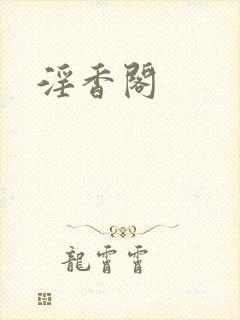 淫香閣
龍霄霄